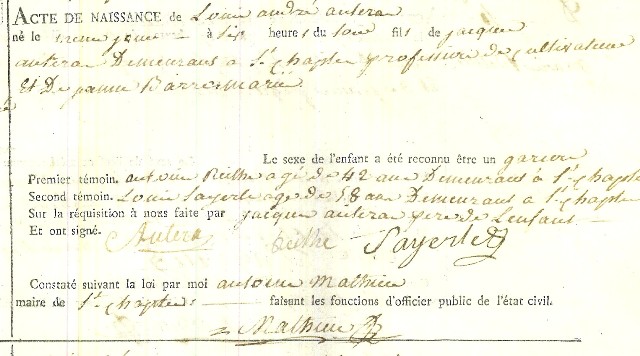 ACTE DE NAISSANCE de Louis andré auteran
né le meme jour à six heures du soir fils de jacque
auteran Demeurant à St. Chapte profession de Cultivateur
Et De jeanne Barre marié
Le sexe de l'enfant a été reconnu être un garcon
Premier témoin. antoine Reilhe agé de 42 ans Demeurant à St. Chapte
Second témoin. Louis Sayerle age de 58 ans Demeurant à St. Chapte
Sur la réquisition à nous faite par jacque auteran pere de Lenfant
Et ont signé. Autera Reilhe Sayerle
Constaté suivant la loi par moi antoine Mathieu
maire de St. Chapte faisant les fonctions d'officier public de l'état civil.
Mathieu